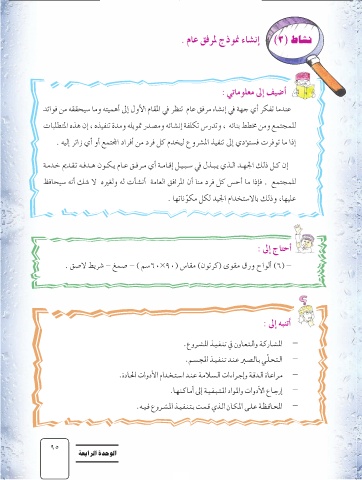 نشاط (٣) إنشاء نموذج لمرفق عام .
أضيف إلى معلوماتي :
عندما تفكر أي جهة في إنشاء مرفق عام تنظر في المقام الأول إلى أهميته وما سيحققه من فوائد
للمجتمع ومن مخطط بنائه ، وتدرس تكلفة إنشائه ومصدر تمويله ومدة تنفيذه ، إن هذه المتطلبات
إذا ما توفرت فستؤدي إلى تنفيذ المشروع ليخدم كل فرد من أفراد المجتمع أو أي زائر إليه .
إن كل ذلك الجهد الذي يبذل في سبيل إقامة أي مرفق عام يكون هدفه تقديم خدمة
للمجتمع , فإذا ما أحس كل فرد منا أن المرافق العامة أنشأت له ولغيره لا شك أنه سيحافظ
عليها، وذلك بالاستخدام الجيد لكل مكوناتها .
أحتاج إلى :
– (٦) ألواح ورق مقوى (كرتون) مقاس (٩٠×٦٠سم) – صمغ – شريط لاصق .
أنتبه إلى :
– المشاركة والتعاون في تنفيذ المشروع.
– التحلّي بالصبر عند تنفيذ المجسم.
– مراعاة الدقة وإجراءات السلامة عند استخدام الأدوات الحادة.
– إرجاع الأدوات والمواد المتبقية إلى أماكنها.
– المحافظة على المكان الذي قمت بتنفيذ المشروع فيه.
الوحدة الرابعة
٩٥